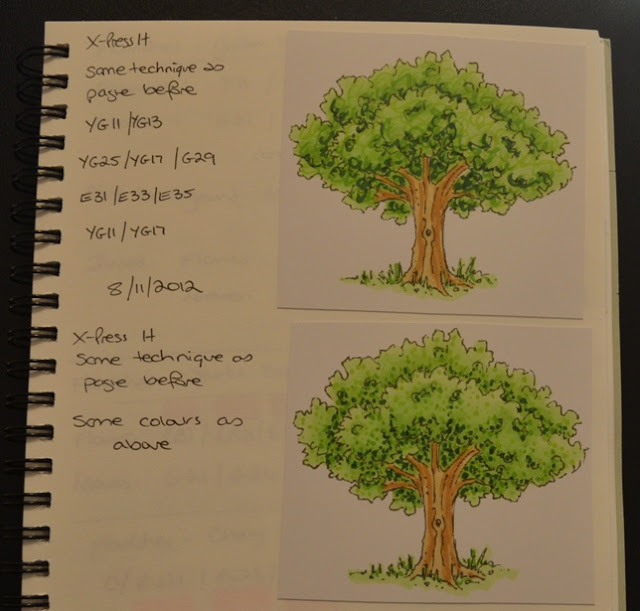 X-Press It
Same technique as
page before
YG11/YG13
YG25/YG17/G29
E31/E33/E35
YG11/YG17
8/11/2012
X-Press It
Same technique as
page before
Same colours as
above